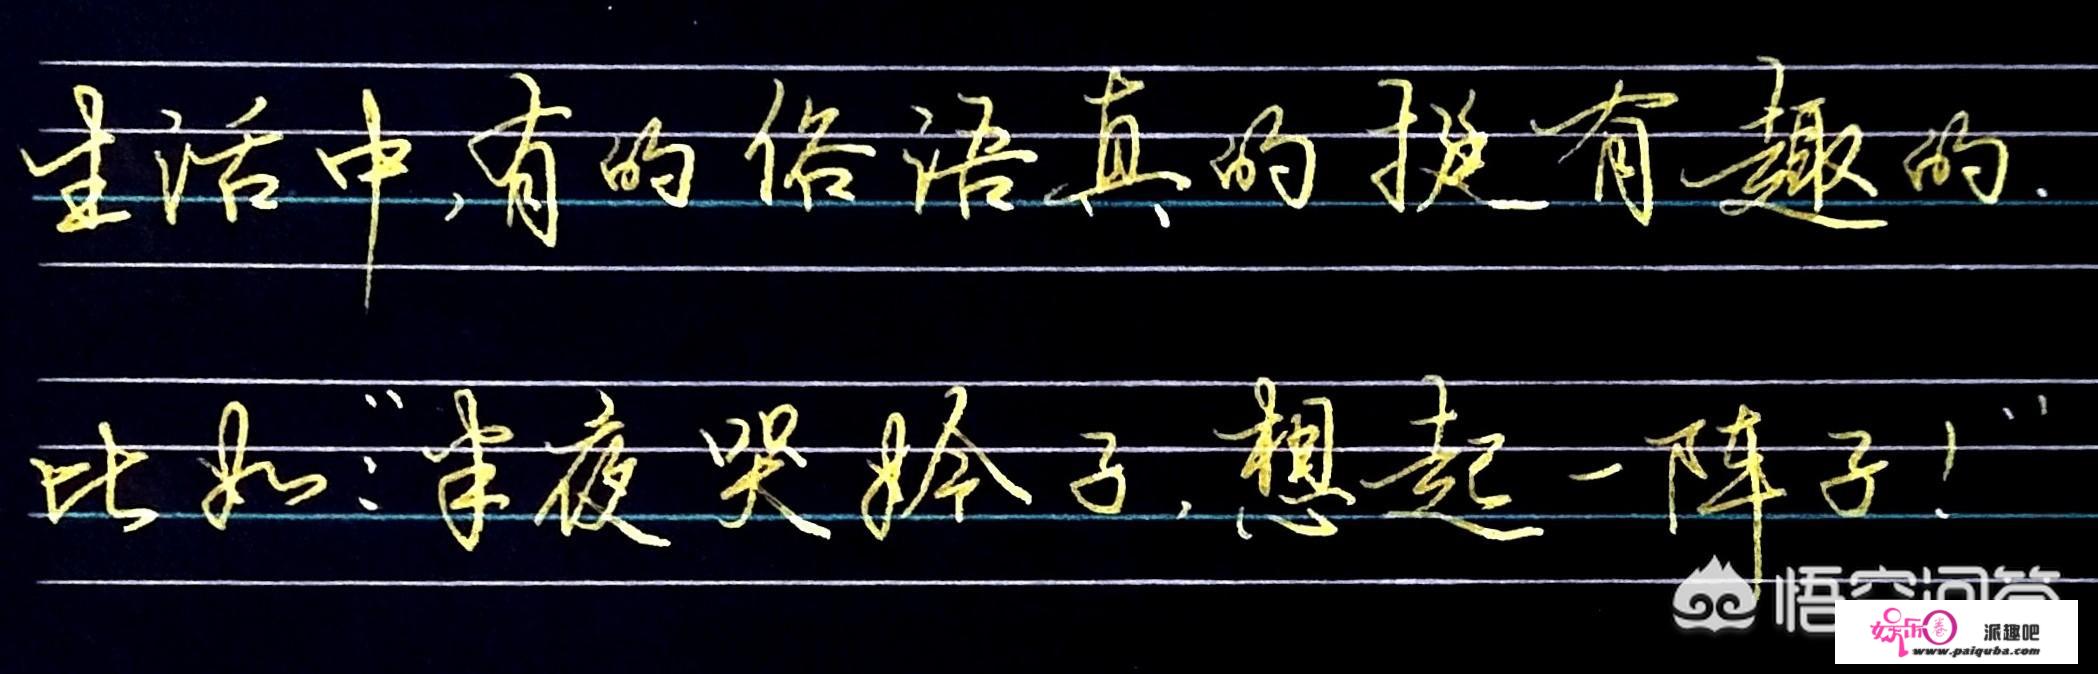 生活中,有的俗语真的挺有趣的.
比如:“半夜哭妗子,想起一阵子!”
悟空问答
娱乐圈 派趣吧
www.paiquba.com